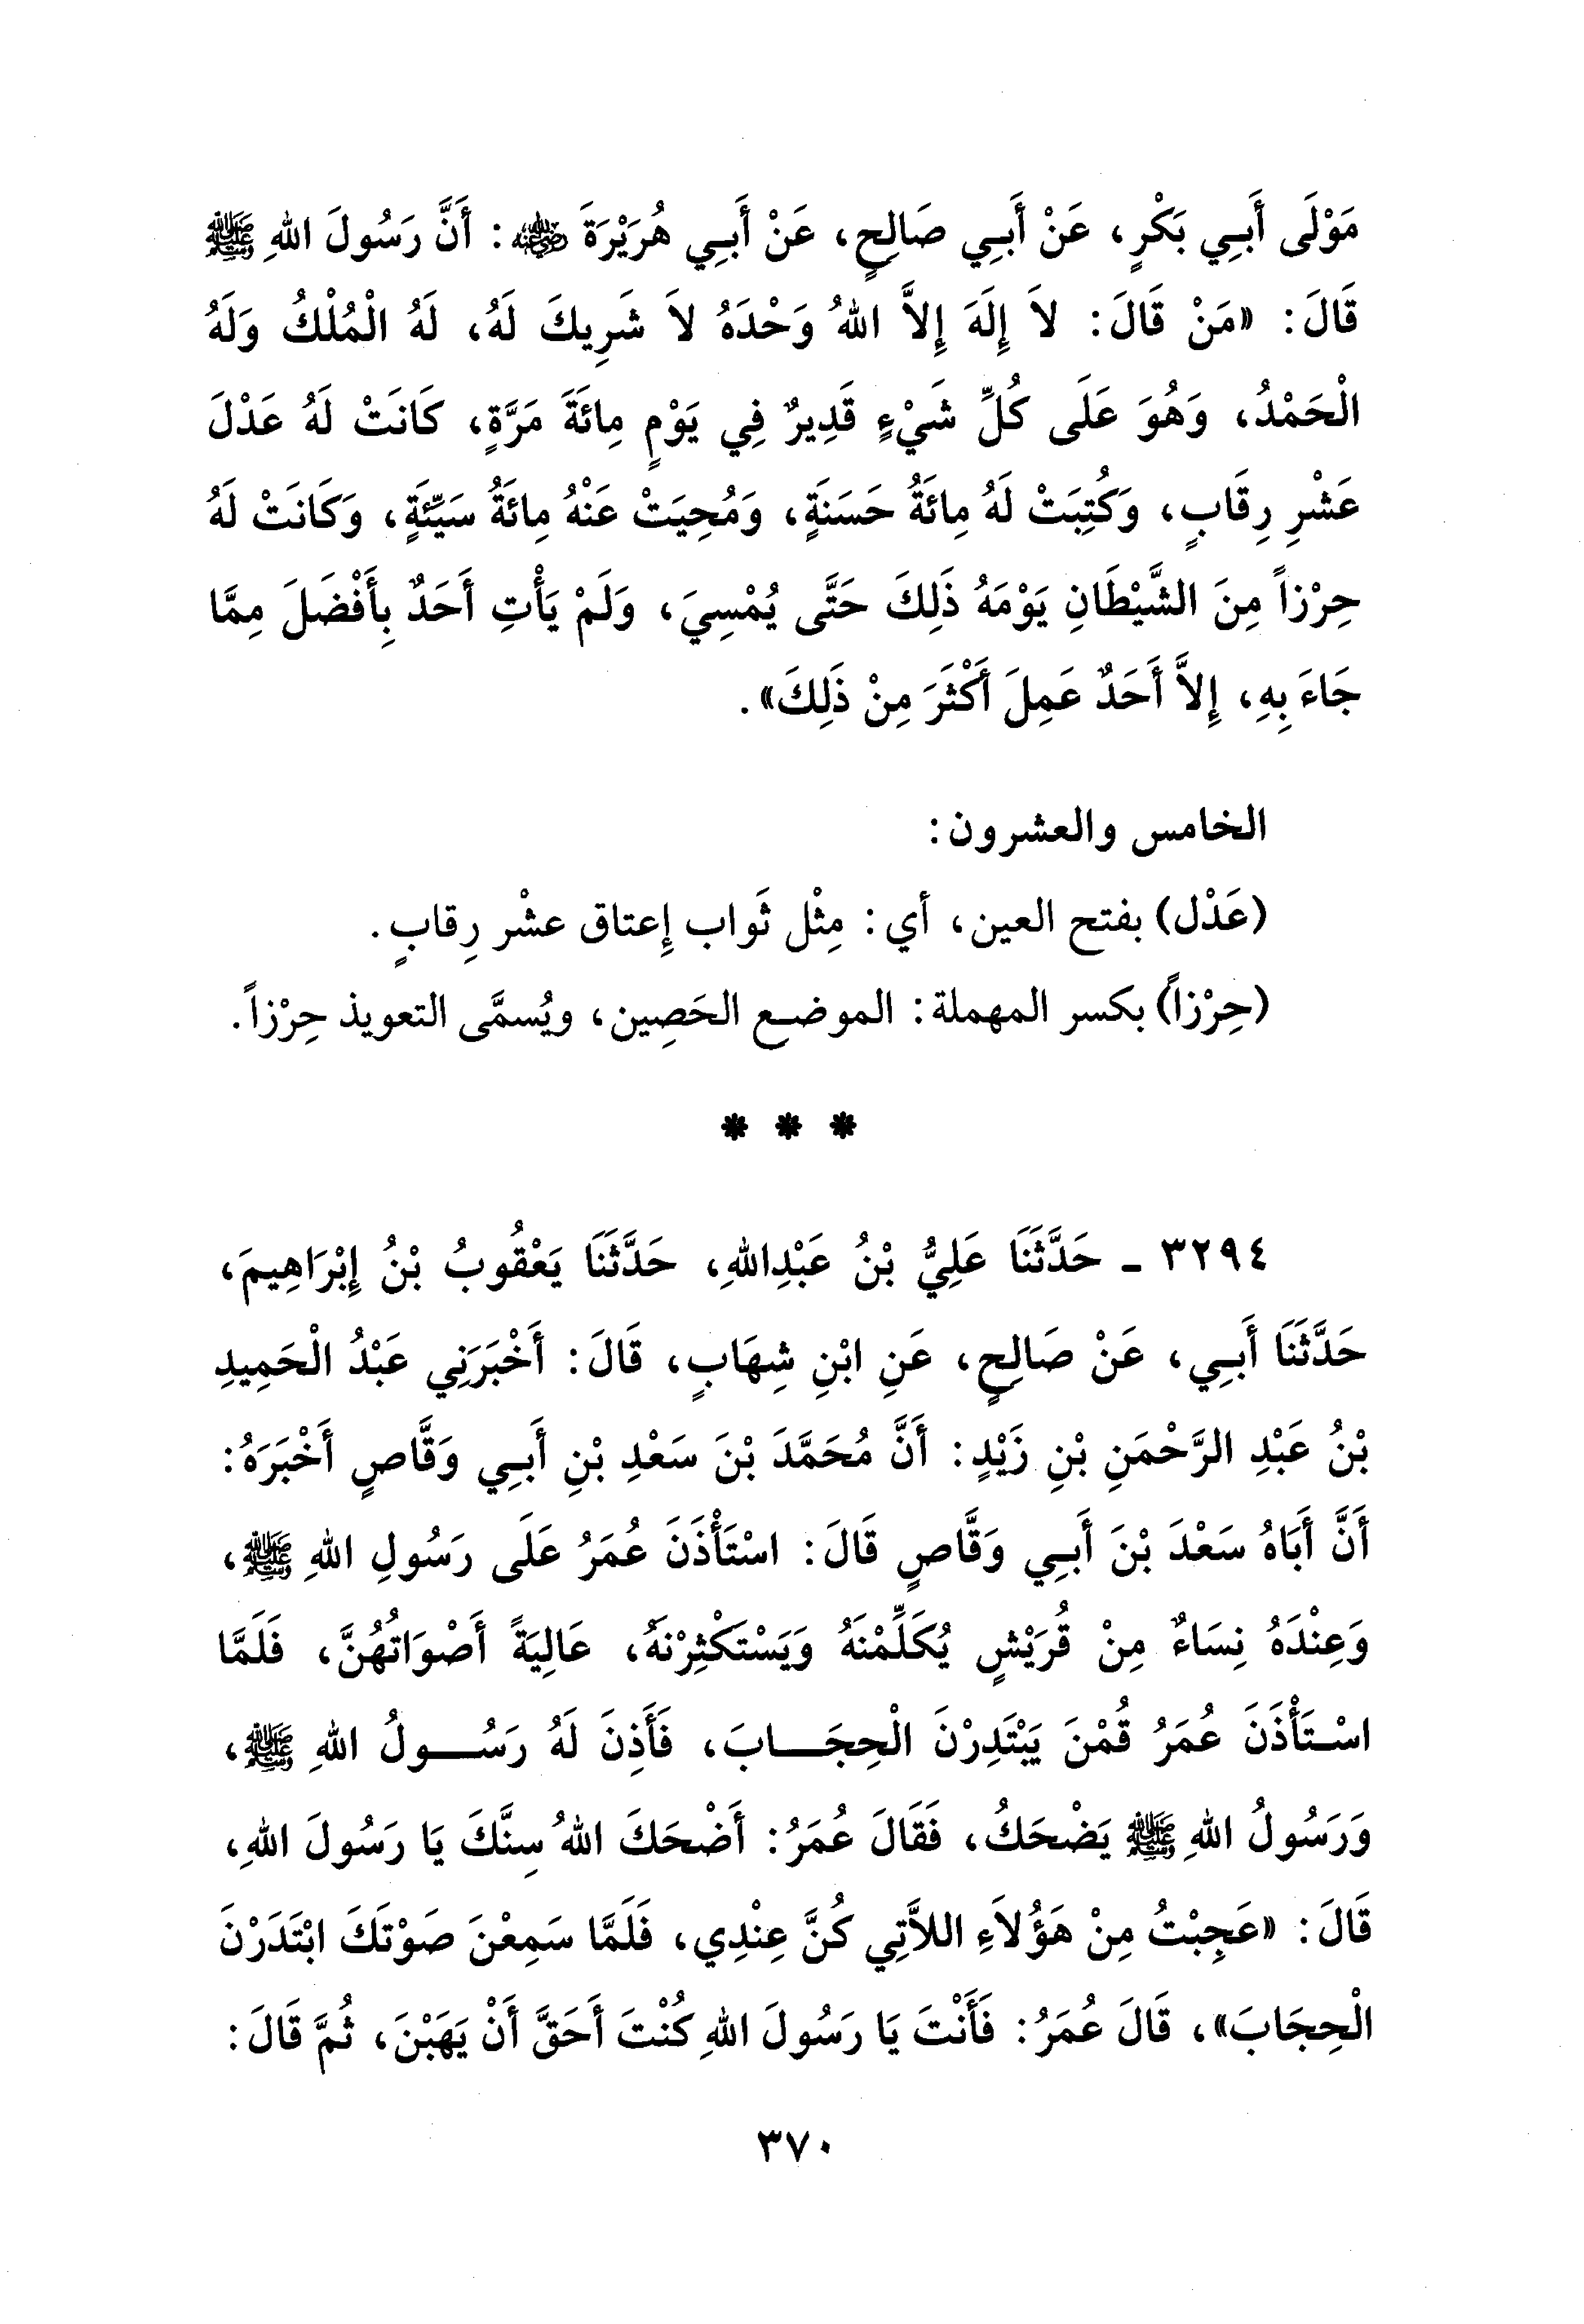 مَوْلَى أَبِي بَكْرٍ، عَنْ أَبِي صَالِحٍ، عَنْ أَبِي هُرَيْرَةَ ﵁: أَنَّ رَسُولَ اللهِ ﷺ
قَالَ: «مَنْ قَالَ: لاَ إِلَهَ إِلاَّ اللهُ وَحْدَهُ لاَ شَرِيكَ لَهُ، لَهُ الْمُلْكُ وَلَهُ
الْحَمْدُ، وَهُوَ عَلَى كُلِّ شَيْءٍ قَدِيرٌ فِي يَوْمٍ مِائَةَ مَرَّةٍ، كَانَتْ لَهُ عَدْلَ
عَشْرِ رِقَابٍ، وَكُتِبَتْ لَهُ مِائَةُ حَسَنَةٍ، وَمُحِيَتْ عَنْهُ مِائَةُ سَيِّئَةٍ، وَكَانَتْ لَهُ
حِرْزاً مِنَ الشَّيْطَانِ يَوْمَهُ ذَلِكَ حَتَّى يُمْسِيَ، وَلَمْ يَأْتِ أَحَدٌ بِأَفْضَلَ مِمَّا
جَاءَ بِهِ، إِلاَّ أَحَدٌ عَمِلَ أَكْثَرَ مِنْ ذَلِكَ».
الخامس والعشرون:
(عَدْل) بفتح العين، أي: مِثْل ثَواب إِعتاق عشْر رِقابٍ.
(حِرْزاً) بكسر المهملة: الموضع الحَصِين، ويُسمَّى التعويذ حِرْزاً.
* * *
٣٢٩٤ - حَدَّثَنَا عَلِيُّ بْنُ عَبْدِاللهِ، حَدَّثَنَا يَعْقُوبُ بْنُ إِبْرَاهِيمَ،
حَدَّثَنَا أَبِي، عَنْ صَالِحٍ، عَنِ ابْنِ شِهَابٍ، قَالَ: أَخْبَرَنِي عَبْدُ الْحَمِيدِ
بْنُ عَبْدِ الرَّحْمَنِ بْنِ زَيْدٍ: أَنَّ مُحَمَّدَ بْنَ سَعْدِ بْنِ أَبِي وَقَّاصٍ أَخْبَرَهُ:
أَنَّ أَبَاهُ سَعْدَ بْنَ أَبِي وَقَّاصٍ قَالَ: اسْتَأْذَنَ عُمَرُ عَلَى رَسُولِ اللهِ ﷺ،
وَعِنْدَهُ نِسَاءٌ مِنْ قُرَيْشٍ يُكَلِّمْنَهُ وَيَسْتَكْثِرْنَهُ، عَالِيَةً أَصْوَاتُهُنَّ، فَلَمَّا
اسْتَأْذَنَ عُمَرُ قُمْنَ يَبْتَدِرْنَ الْحِجَـابَ، فَأَذِنَ لَهُ رَسُـولُ اللهِ ﷺ،
وَرَسُولُ اللهِ ﷺ يَضْحَكُ، فَقَالَ عُمَرُ: أَضْحَكَ اللهُ سِنَّكَ يَا رَسُولَ اللهِ،
قَالَ: «عَجِبْتُ مِنْ هَؤُلاَءِ اللاَّتِي كُنَّ عِنْدِي، فَلَمَّا سَمِعْنَ صَوْتَكَ ابْتَدَرْنَ
الْحِجَابَ»، قَالَ عُمَرُ: فَأَنْتَ يَا رَسُولَ اللهِ كُنْتَ أَحَقَّ أَنْ يَهَبْنَ، ثُمَّ قَالَ:
٣٧٠